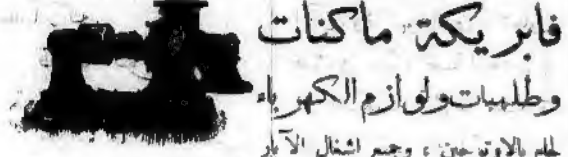 فابريكة ماكنات
وطلمبات ولوازم الكهرباء
لحام بالاوتوجين ، وجميع اشغال الآبار